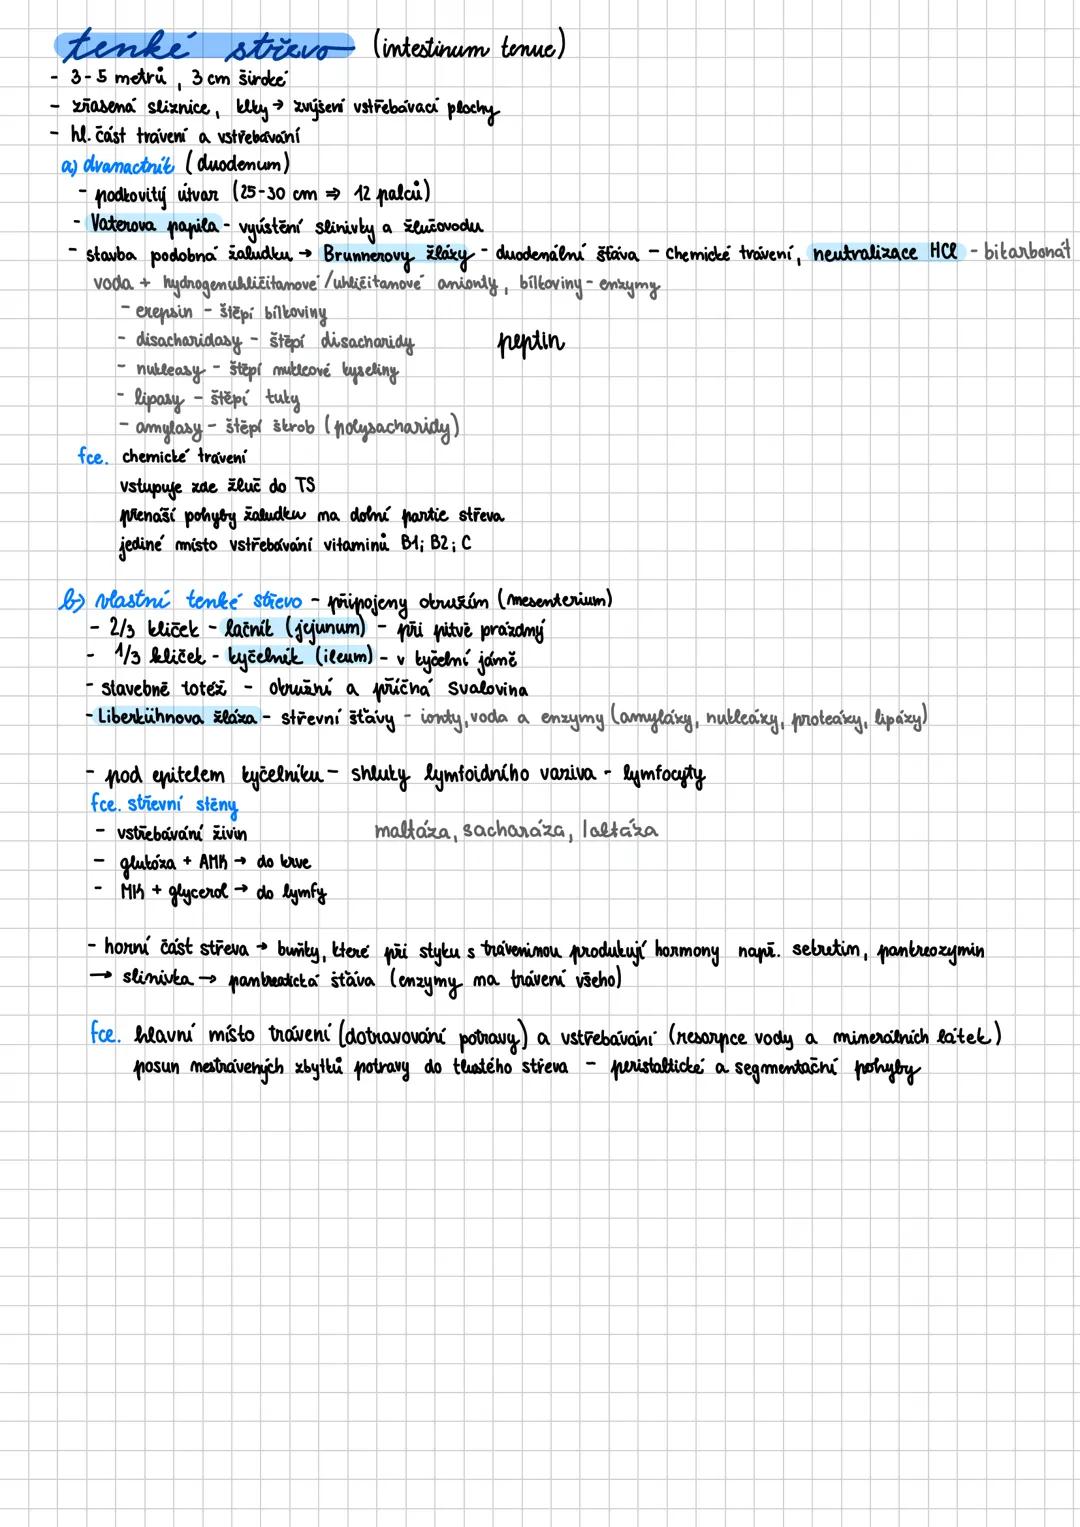 tenké střevo (intestinum tenue)
- 3-5 metrů, 3 cm široké
- zřasená sliznice, klky → zvýšení vstřebávací plochy
- hl. část trávení a vstřebávání
a) dvanactník (duodenum)
- podkovitý útvar (25-30 cm ⇒ 12 palců)
- Vaterova papila - vyústění slinivky a žlučovodu
- stavba podobná žaludku → Brunnerovy žlázy - duodenální šťáva - chemické trávení, neutralizace HCl - bikarbonát
voda + hydrogenuhličitanové/uhličitanové anionty, bílkoviny - enzymy
- erepsin - štěpí bílkoviny
- disacharidasy - štěpí disacharidy peptin
- nukleasy - štěpí nukleové kyseliny
- lipasy - štěpí tuky
- amylasy - štěpí škrob (polysacharidy)
fce. chemické trávení
vstupuje zde žluč do TS
přenáší pohyby žaludku na dolní partie střeva
jediné místo vstřebávání vitaminů B1; B2; C
b) vlastní tenké střevo - připojeny okružím (mesenterium)
- 2/3 kliček - lačník (jejunum) - při pitvě prázdný
- 1/3 kliček - kyčelník (ileum) - v kyčelní jámě
- stavebně totéž - okružní a příčná svalovina
- Liberkühnova žláza - střevní šťávy - ionty, voda a enzymy (amylázy, nukleázy, proteázy, lipázy)
- pod epitelem kyčelníku - shluky lymfoidního vaziva - lymfocyty
fce. střevní stěny
- vstřebávání živin maltáza, sacharáza, laktáza
- glukóza + AMK → do krve
- MK + glycerol → do lymfy
- horní část střeva → buňky, které při styku s tráveninou produkují hormony např. sekretin, pankreozymin
→ slinivka → pankreatická šťáva (enzymy na trávení všeho)
fce. hlavní místo trávení (dotravování potravy) a vstřebávání (resorpce vody a minerálních látek)
posun nestrávených zbytků potravy do tlustého střeva - peristaltické a segmentační pohyby